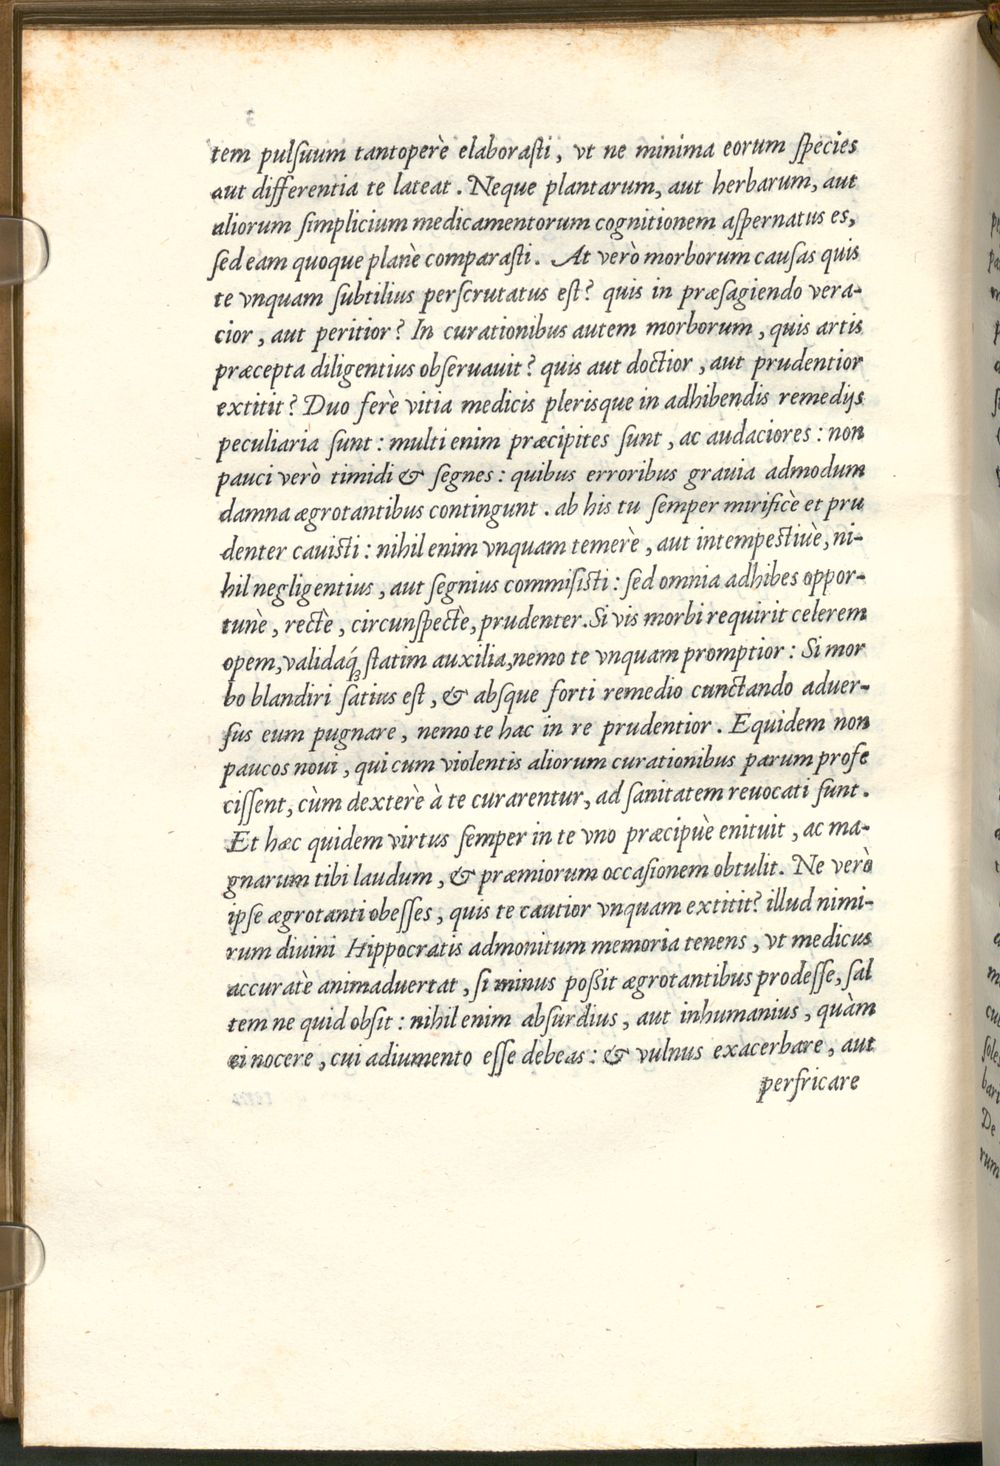 tem pulſuum tantoperè elaboraſti, vt ne minima eorum ſpecies
aut differentia te lateat. Neque plantarum, aut herbarum, aut
aliorum ſimplicium medicamentorum cognitionem aſpernatus es,
ſed eam quoque planè comparaſti. At verò morborum cauſas quis
te vnquam ſubtilius perſcrutatus eſt? quis in præſagiendo vera-
cior, aut peritior? In curationibus autem morborum, quis artis
præcepta diligentius obſeruauit? quis aut doctior, aut prudentior
extitit? Duo ferè vitia medicis plerisque in adhibendis remedijs
peculiaria ſunt: multi enim præcipites ſunt, ac audaciores: non
pauci verò timidi & ſegnes: quibus erroribus grauia admodum
damna ægrotantibus contingunt. ab his tu ſemper mirificè et pru
denter cauiſti: nihil enim vnquam temerè, aut intempeſtiuè, ni-
hil negligentius, aut ſegnius commiſiſti: ſed omnia adhibes oppor-
tunè, rectè, circunſpectè, prudenter. Si vis morbi requirit celerem
opem, validaq́; ſtatim auxilia, nemo te vnquam promptior: Si mor
bo blandiri ſatius eſt, & abſque forti remedio cunctando aduer-
ſus eum pugnare, nemo te hac in re prudentior. Equidem non
paucos noui, qui cum violentis aliorum curationibus parum profe
ciſſent, cùm dexterè à te curarentur, ad ſanitatem reuocati ſunt.
Et hæc quidem virtus ſemper in te vno præcipuè enituit, ac ma-
gnarum tibi laudum, & præmiorum occaſionem obtulit. Ne verò
ipſe ægrotanti obeſſes, quis te cautior vnquam extitit? illud nimi-
rum diuini Hippocratis admonitum memoria tenens, vt medicus
accuratè animaduertat, ſi minus poſsit ægrotantibus prodeſſe, ſal
tem ne quid obſit: nihil enim abſurdius, aut inhumanius, quàm
ei nocere, cui adiumento eſſe debeas: & vulnus exacerbare, aut
perfricare